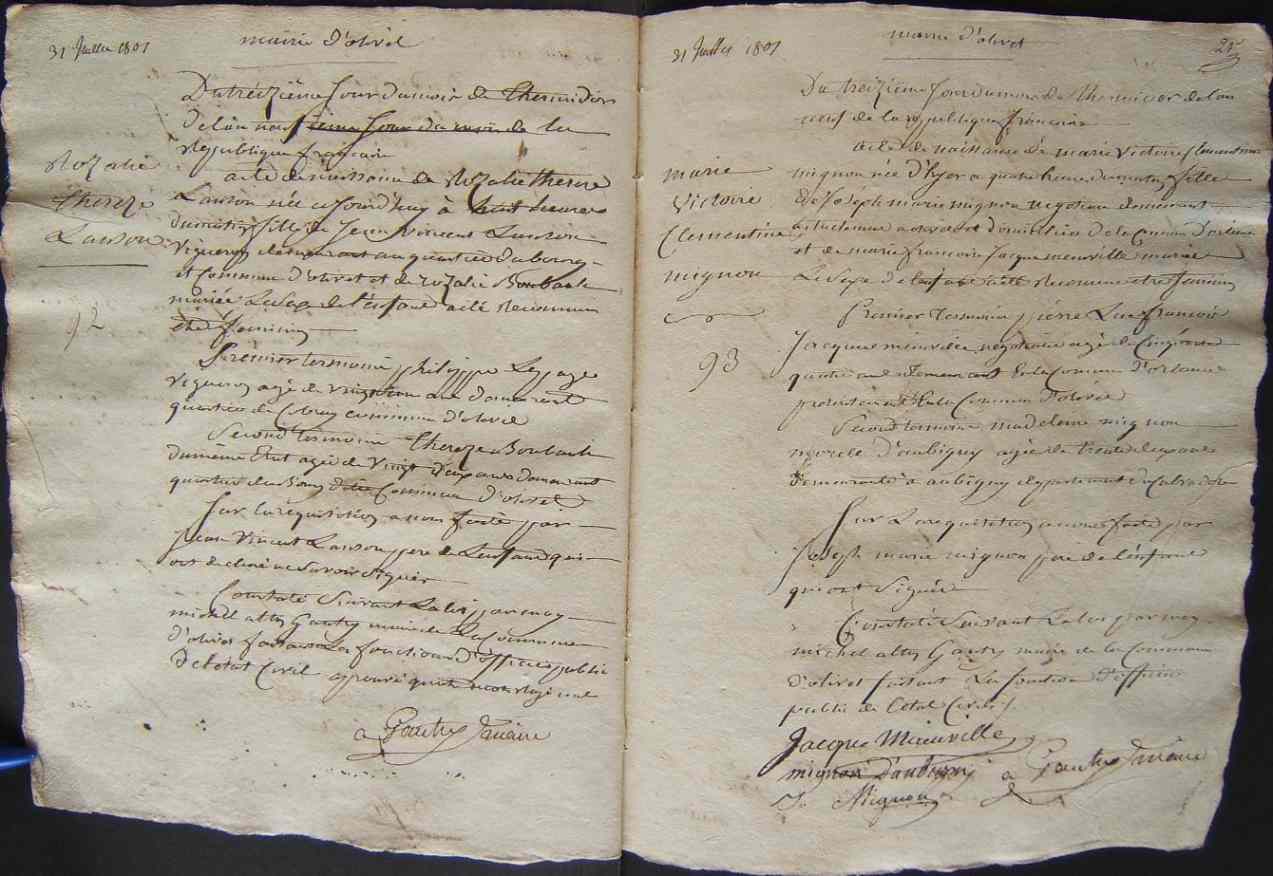 31 Juillet 1801
mairie d'olivet
Du treizième Jour du mois de Thermidor
de l'an neuf de la
République française
Rozalie
Thereze
Lanson
92
acte de naissance de Rozalie Thereze
Lanson née ce jourd'huy à huit heures
du matin fille de Jean Vincent Lanson
Vigneron demeurant au quartier du bourg
et Commune d'olivet et de Rozalie Boubault
mariée Le Sexe de l'enfant a été Reconnu
etre feminin
Premier temoins philippe Lepage
Vigneron agé de ans demeurant
quartier de commune d'olivet
Second temoins Thereze Boubault
du même Etat agée de Vingt deux ans demeurant
quartier du Bourg Commune d'olivet
Sur la réquisition a nous faite par
Jean Vincent Lanson pere de L'enfant qui
ont declaré ne Savoir Signer
Constaté Suivant La loi par moy
michel Gautry maire de La Commune
d'olivet faisant Les fonctions d'officier public
De l'état Civil approuvé
Gautry maire
31 Juillet 1801
mairie d'olivet
Du treizième Jour du mois de thermidor de l'an
neuf de la république française
marie
Victoire
Clementine
mignon
93
acte de naissance de marie Victoire Clementine
mignon née d'hyer a quatre heures du matin fille
de Joseph marie mignon negotian demeurant
actuelement a olivet domicilier de la Commune d'orleans
et de marie francoise Jacque mieuville mariée
Le Sexe de l'enfant a été Reconnu etre feminin
Premier temoins pierre Luc francois
Jacque mieuville negotiant agé de Cinquante
quatre ans demeurant En la Commune d'orleans
En la Commune d'olivet
Second temoins madeleine mignon
d'aubigny agée de trente deux ans
demeurante à aubigny departement du Calvados
Sur La requisition a nous faite par
Joseph marie mignon pere de l'enfant
qui ont Signés
Constaté Suivant La loi par moy
michel Gautry maire de la Commune
d'olivet faisant Les fonctions d'officier
public de l'état Civil
Jacque Mieuville
mignon D'aubigny
Gautry maire
J. Mignon